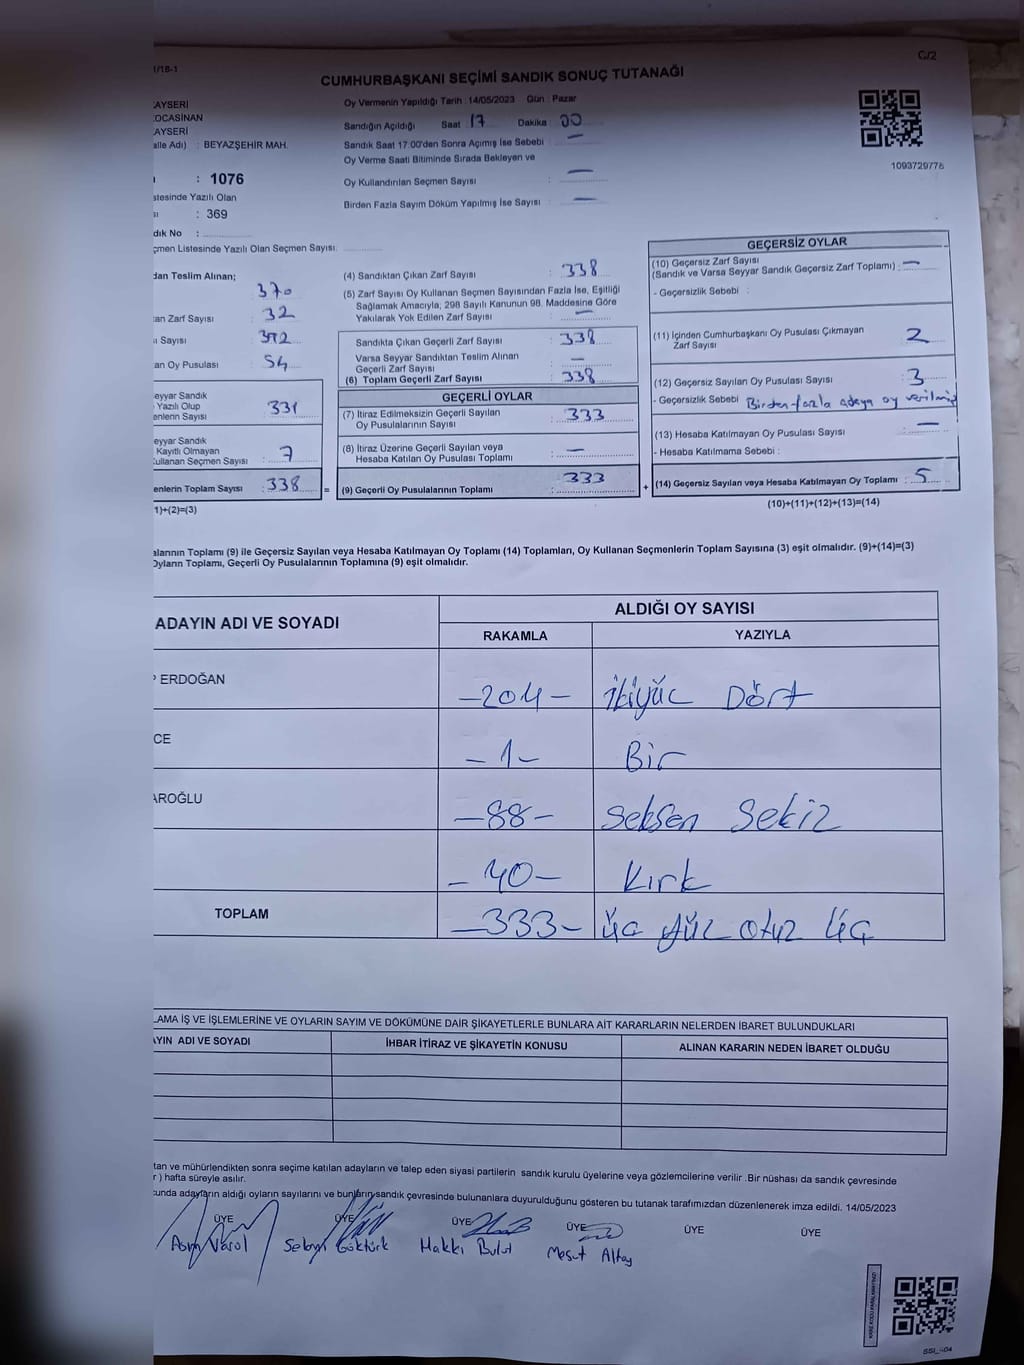 1/18-1
G/2
CUMHURBAŞKANI SEÇİMİ SANDIK SONUÇ TUTANAĞI
AYSERİ
OCASİNAN
AYSERİ
alle Adı) : BEYAZŞEHİR MAH.
: 1076
stesinde Yazılı Olan
: 369
dık No :
çmen Listesinde Yazılı Olan Seçmen Sayısı:
Oy Vermenin Yapıldığı Tarih : 14/05/2023 Gün : Pazar
Sandığın Açıldığı Saat : 17 Dakika : 00
Sandık Saat 17:00'den Sonra Açımış İse Sebebi : —
Oy Verme Saati Bitiminde Sırada Bekleyen ve
Oy Kullandırılan Seçmen Sayısı : —
Birden Fazla Sayım Döküm Yapılmış İse Sayısı : —
1093729776
dan Teslim Alınan;
370
an Zarf Sayısı : 32
ı Sayısı :
an Oy Pusulası : 54
eyyar Sandık
Yazılı Olup
enlerin Sayısı : 331
eyyar Sandık
Kayıtlı Olmayan
ullanan Seçmen Sayısı : 7
enlerin Toplam Sayısı : 338
1)+(2)=(3)
(4) Sandıktan Çıkan Zarf Sayısı : 338
(5) Zarf Sayısı Oy Kullanan Seçmen Sayısından Fazla İse, Eşitliği
Sağlamak Amacıyla, 298 Sayılı Kanunun 98. Maddesine Göre
Yakılarak Yok Edilen Zarf Sayısı : —
Sandıkta Çıkan Geçerli Zarf Sayısı : 338
Varsa Seyyar Sandıktan Teslim Alınan
Geçerli Zarf Sayısı : —
(6) Toplam Geçerli Zarf Sayısı : 338
GEÇERLİ OYLAR
(7) İtiraz Edilmeksizin Geçerli Sayılan
Oy Pusulalarının Sayısı : 333
(8) İtiraz Üzerine Geçerli Sayılan veya
Hesaba Katılan Oy Pusulası Toplamı : —
= (9) Geçerli Oy Pusulalarının Toplamı : 333
GEÇERSİZ OYLAR
(10) Geçersiz Zarf Sayısı
(Sandık ve Varsa Seyyar Sandık Geçersiz Zarf Toplamı) : —
- Geçersizlik Sebebi :
(11) İçinden Cumhurbaşkanı Oy Pusulası Çıkmayan
Zarf Sayısı : 2
(12) Geçersiz Sayılan Oy Pusulası Sayısı : 3
- Geçersizlik Sebebi : Birden fazla adaya oy verilmiş
(13) Hesaba Katılmayan Oy Pusulası Sayısı : —
- Hesaba Katılmama Sebebi :
+ (14) Geçersiz Sayılan veya Hesaba Katılmayan Oy Toplamı : 5
(10)+(11)+(12)+(13)=(14)
alarının Toplamı (9) ile Geçersiz Sayılan veya Hesaba Katılmayan Oy Toplamı (14) Toplamları, Oy Kullanan Seçmenlerin Toplam Sayısına (3) eşit olmalıdır. (9)+(14)=(3)
Oyların Toplamı, Geçerli Oy Pusulalarının Toplamına (9) eşit olmalıdır.
ADAYIN ADI VE SOYADI
ALDIĞI OY SAYISI
RAKAMLA YAZIYLA
ERDOĞAN -204- İkiyüz Dört
CE -1- Bir
AROĞLU -88- Seksen Sekiz
-40- Kırk
TOPLAM -333- Üç Yüz Otuz Üç
LAMA İŞ VE İŞLEMLERİNE VE OYLARIN SAYIM VE DÖKÜMÜNE DAİR ŞİKAYETLERLE BUNLARA AİT KARARLARIN NELERDEN İBARET BULUNDUKLARI
AYIN ADI VE SOYADI İHBAR İTİRAZ VE ŞİKAYETİN KONUSU ALINAN KARARIN NEDEN İBARET OLDUĞU
tan ve mühürlendikten sonra seçime katılan adayların ve talep eden siyasi partilerin sandık kurulu üyelerine veya gözlemcilerine verilir .Bir nüshası da sandık çevresinde
r ) hafta süreyle asılır.
cunda adayların aldığı oyların sayılarını ve bunların sandık çevresinde bulunanlara duyurulduğunu gösteren bu tutanak tarafımızdan düzenlenerek imza edildi. 14/05/2023
ÜYE ÜYE ÜYE ÜYE ÜYE ÜYE
Varol Göktürk Hakkı Bulut Mesut Altay